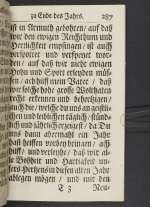 zu Ende des Jahrs. 287
ist in Armuth gebohren / auf daß
wir den ewigen Reichthum und
Herrlichkeit empfingen / ist auch
verspottet und verspeyet wor-
den / auf daß wir nicht ewigen
Hohn und Spott erleyden müs-
sen / ach hilff mein Vater / daß
wir solche hohe grosse Wolthaten
recht erkennen und behertzigen /
auch die / welche du uns an geistli-
chen und leiblichen täglich / stünd-
lich und jährlich erzeigest / da Du
uns dann abermahl ein Jahr
hast helffen vorbey bringen / ach
hilff / und verleyhe / daß wir al-
le Boßheit und Hartigkeit un-
sers Hertzens in diesem alten Jahr
ablegen mögen / und mit den
T 3 Neu-